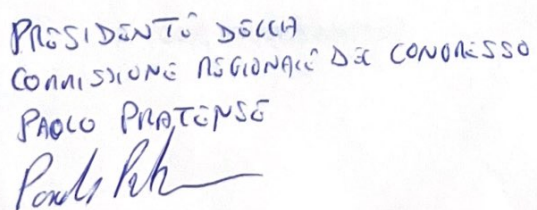 PRESIDENTE DELLA
COMMISSIONE REGIONALE DEL CONGRESSO
PAOLO PRATENSE